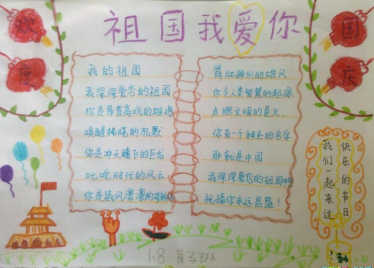 祖国我爱你
欢度
国庆
我的祖国
我深深爱恋的祖国
你是昂首高吭的雄鸡
唤醒拂晓的沉默
你是冲天腾飞的巨龙
叱咤时代的风云
你是威风凛凛的
舞动神州的雄风
你是人类智慧的起源
点燃文明的星火
你有一个神圣的名字
那就是中国
我深深爱恋的祖国啊
祝福你永远昌盛！
快乐的节日
我们一起来过
1.8